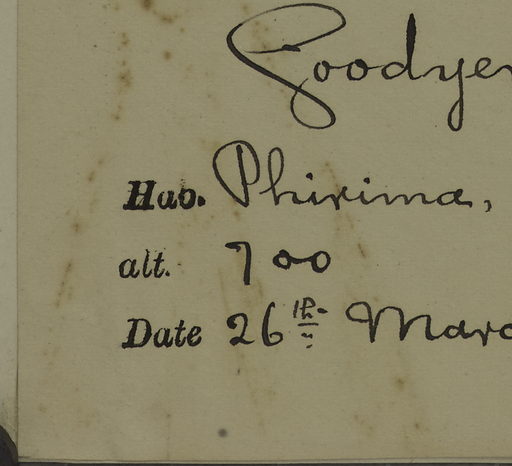 Goodyer
Hab. Phirima,
alt. 700
Date 26th Marc